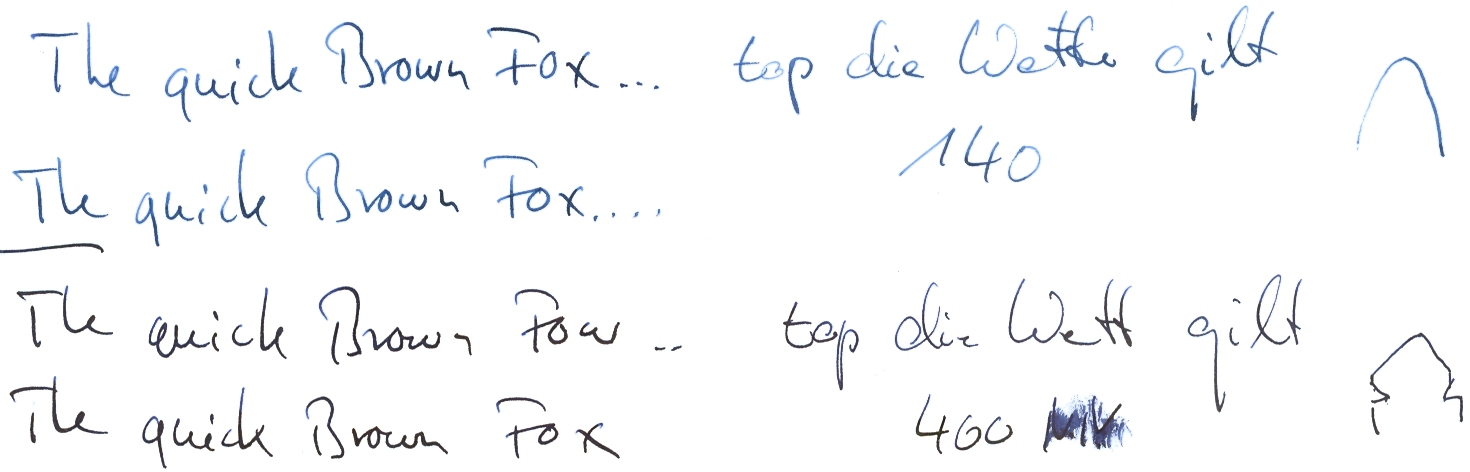 The quick Brown Fox... top die Wette gilt
140
The quick Brown Fox....
The quick Brown Fox .. top die Wett gilt
The quick Brown Fox 400